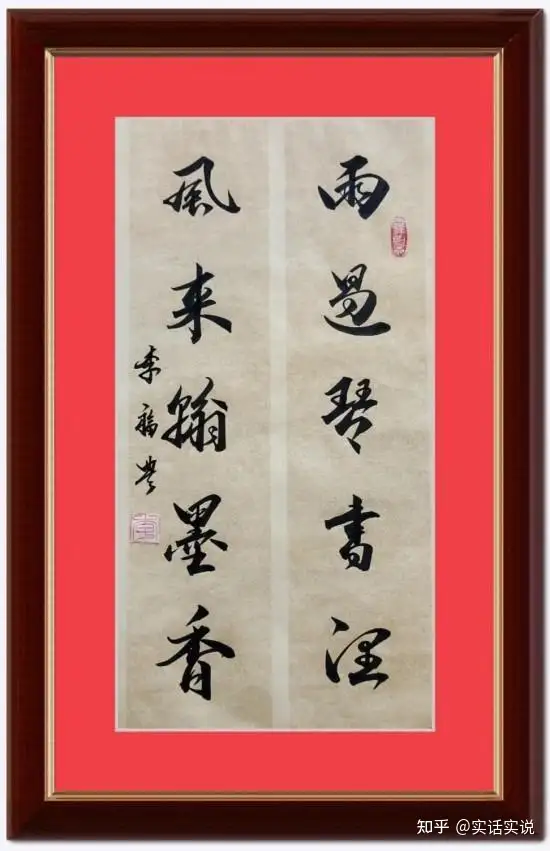 雨過琴書潤
風来翰墨香
李福
知乎 @实话实说